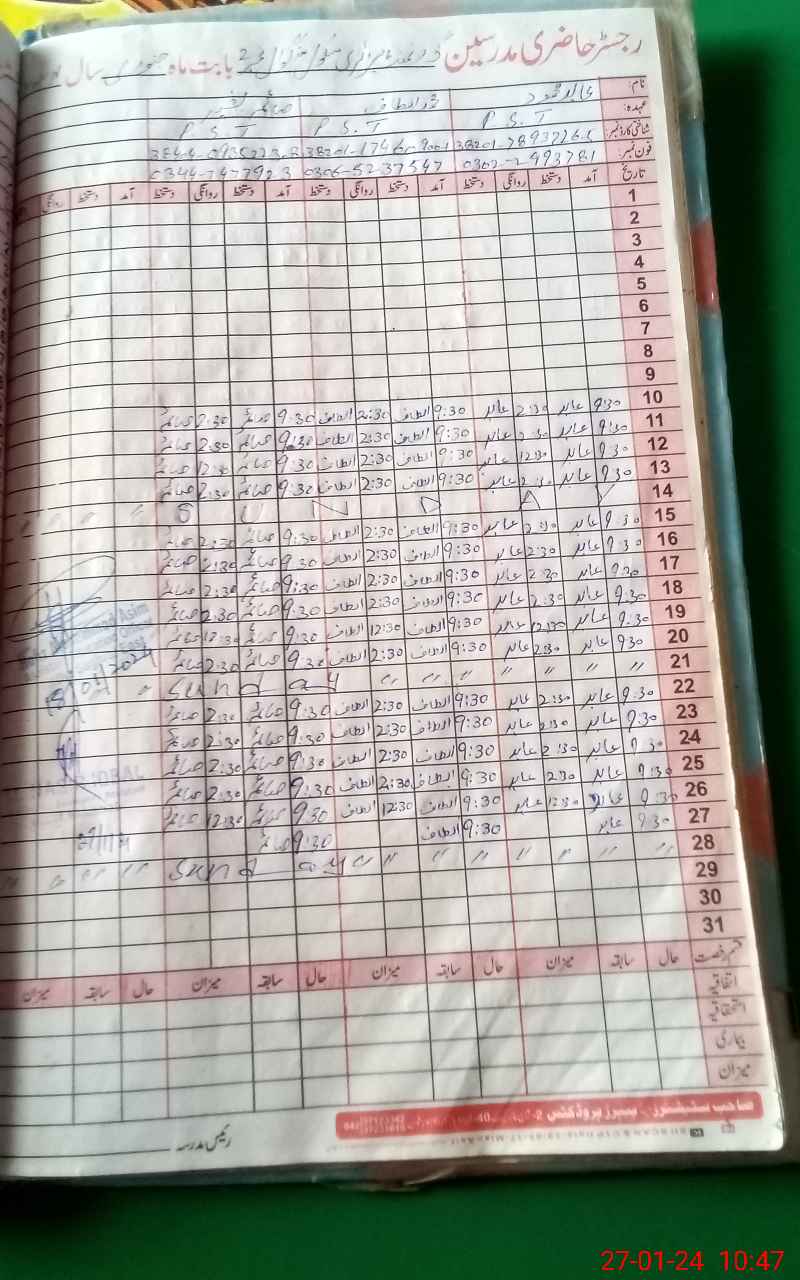 رجسٹر حاضری مدرسین گورنمنٹ پرائمری سکول بابت ماہ جنوری سال
نام: عابد محمود
عہدہ: P.S.T P.S.T P.S.T
شناختی کارڈ نمبر:
فون نمبر: 0302-2993781 0306-5237547 0344-7477923
تاریخ آمد دستخط روانگی دستخط آمد دستخط روانگی دستخط آمد دستخط روانگی دستخط آمد دستخط روانگی
1
2
3
4
5
6
7
8
9
10 9:30 عابد 2:30 عابد 9:30 الطاف 2:30 الطاف 9:30 صائمہ 2:30 صائمہ
11 9:30 عابد 2:30 عابد 9:30 الطاف 2:30 الطاف 9:30 صائمہ 2:30 صائمہ
12 9:30 عابد 12:30 عابد 9:30 الطاف 2:30 الطاف 9:30 صائمہ 12:30 صائمہ
13 9:30 عابد 2:30 عابد 9:30 الطاف 2:30 الطاف 9:30 صائمہ 2:30 صائمہ
14 S U N D A Y
15 9:30 عابد 2:30 عابد 9:30 الطاف 2:30 الطاف 9:30 صائمہ 2:30 صائمہ
16 9:30 عابد 2:30 عابد 9:30 الطاف 2:30 الطاف 9:30 صائمہ 2:30 صائمہ
17 9:30 عابد 2:30 عابد 9:30 الطاف 2:30 الطاف 9:30 صائمہ 2:30 صائمہ
18 9:30 عابد 2:30 عابد 9:30 الطاف 2:30 الطاف 9:30 صائمہ 2:30 صائمہ
19 9:30 عابد 12:30 عابد 9:30 الطاف 12:30 الطاف 9:30 صائمہ 12:30 صائمہ
20 9:30 عابد 2:30 عابد 9:30 الطاف 2:30 الطاف 9:30 صائمہ 2:30 صائمہ
21 Sunday
22 9:30 عابد 2:30 عابد 9:30 الطاف 2:30 الطاف 9:30 صائمہ 2:30 صائمہ
23 9:30 عابد 2:30 عابد 9:30 الطاف 2:30 الطاف 9:30 صائمہ 2:30 صائمہ
24 9:30 عابد 2:30 عابد 9:30 الطاف 2:30 الطاف 9:30 صائمہ 2:30 صائمہ
25 9:30 عابد 2:30 عابد 9:30 الطاف 2:30 الطاف 9:30 صائمہ 2:30 صائمہ
26 9:30 عابد 12:30 عابد 9:30 الطاف 12:30 الطاف 9:30 صائمہ 12:30 صائمہ
27 9:30 عابد 9:30 الطاف 9:30 صائمہ
28 Sunday
29
30
31
قسم رخصت حال سابقہ میزان حال سابقہ میزان حال سابقہ میزان حال سابقہ میزان
اتفاقیہ
استحقاقیہ
بیماری
میزان
رئیس مدرسہ
27-01-24 10:47